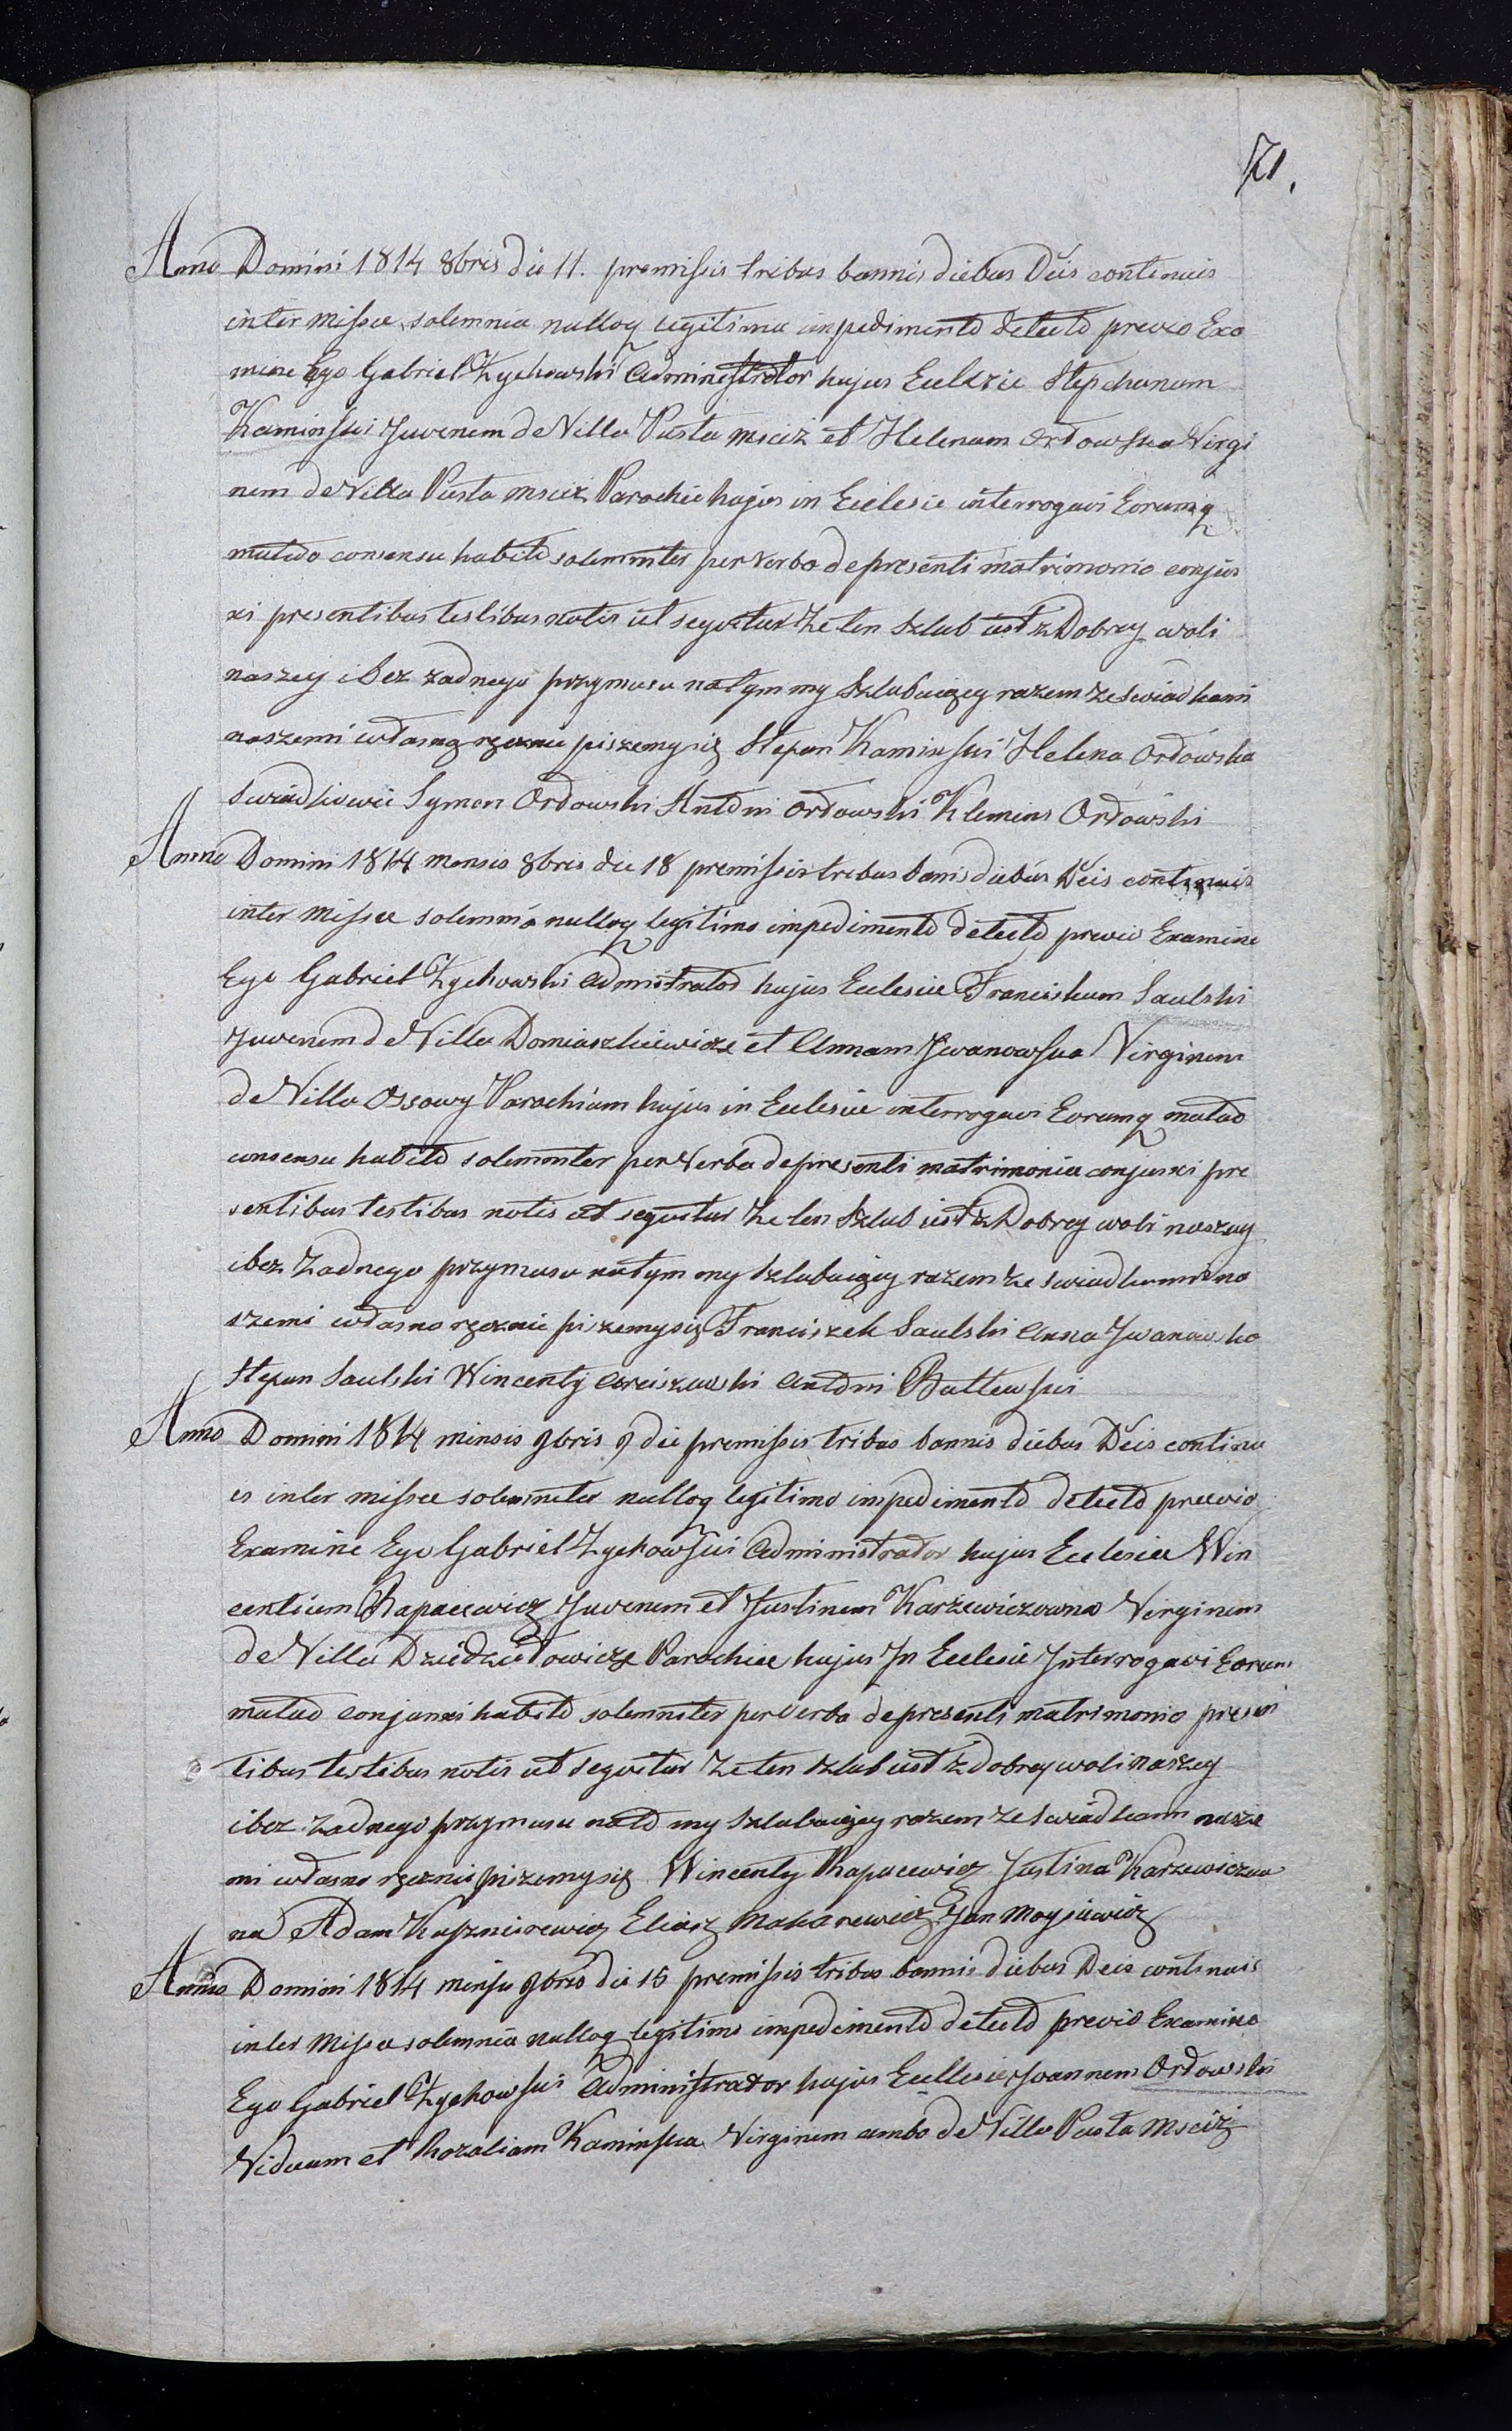 71.
Anno Domini 1814 8bris die 11. premissis tribus bannis diebus Dĕis continuis
inter missæ solemnia nulloq legitimu impedimento detecto previo Exa
mine Ego Gabriel Zychowski Administrator hujus Eclezie Stephanum
Kaminski Juvenem de Villa Pusta mscíz et Helenam Orłowska Virgi
nem de Villa Pusta mscíz Parochie hujus in Eclesie interrogavi Eorumq
mutuo consensu habito solemniter per verba de presenti matrimonio conjun
xi presentibus testibus notis ut seqvitur Ze ten Szlub iest z Dobrey woli
naszey i bez zadnego przymusu na tym my Szlubuięcy razem ze swiadkami
naszemi własnoręcznie piszemy się Stefan Kaminski Helena Orłowska
Swiadkowie Symon Orłowski Antoni Orłowski Klemens Orłowski
Anno Domini 1814 mensis 8bris die 18 premissis tribus banis diebus Dĕis continuis
inter missæ solemnia nulloq legitimo impedimento detecto previo Examine
Ego Gabriel Zychowski Admistrator hujus Eclesiæ Franciskum Saulski
Juvenem de Villa Domaszkiewicze et Annam Jwanowska Virginem
de Villa Ossowy Parochiam hujus in Eclesiæ interrogavi Eorumq mutuo
consensu habito solemniter per Verba de presenti matrimonia conjunxi pre
sentibus testibus notis ut seqvitur Ze ten Szlub iest z Dobrey woli naszey
i bez Zadnego przymusu natym my szlubuięcy razem ze swiadkami na
szemi własno ręcznie piszemy się Franciszek Saulski Anna Jwanowska
Stepan Saulski Wincenty Arciszewski Antoni Butkewski
Anno Domini 1814 minsis 9bris 9 die premissis tribus bannis diebus Dĕis continu
is inter missæ solemniter nulloq legitimo impedimento detecto prævio
Examine Ego Gabriel Zychowski Administrator hujus Eclesiæ Win
centium Rapacewicz Juvenem et Justinem Karżewiczowna Virginem
de Villa Dziedziełowicze Parochiæ hujus Jn Eclesie Jnterrogavi Eorum
mutuo conjunxi habito solemniter per verba de presenti matrimonio presen
tibus testibus notis ut seqvitur Ze ten szlub iest z dobrey woli naszey
i bez Zadnego przymusu nato my szlubuięcy razem ze swiadkami nasze
mi własno ręcznie piszemy się Wincenty Rapacewicz Justina Karzewiczow
na Adam Kusznierewicz Eliasz Makarewicz Jan Moysiewicz
Anno Domini 1814 minsu 9bris die 15 premissis tribus bannis diebus Deis continuis
inter Missæ solemnia nulloq legitimo impedimento detecto previo Examine
Ego Gabriel Zychowski Administrator hujus Ecllesiæ Joannem Orłowski
Viduum et Rozaliam Kaminska Virginem ambo de Villa Pusta Mscíz